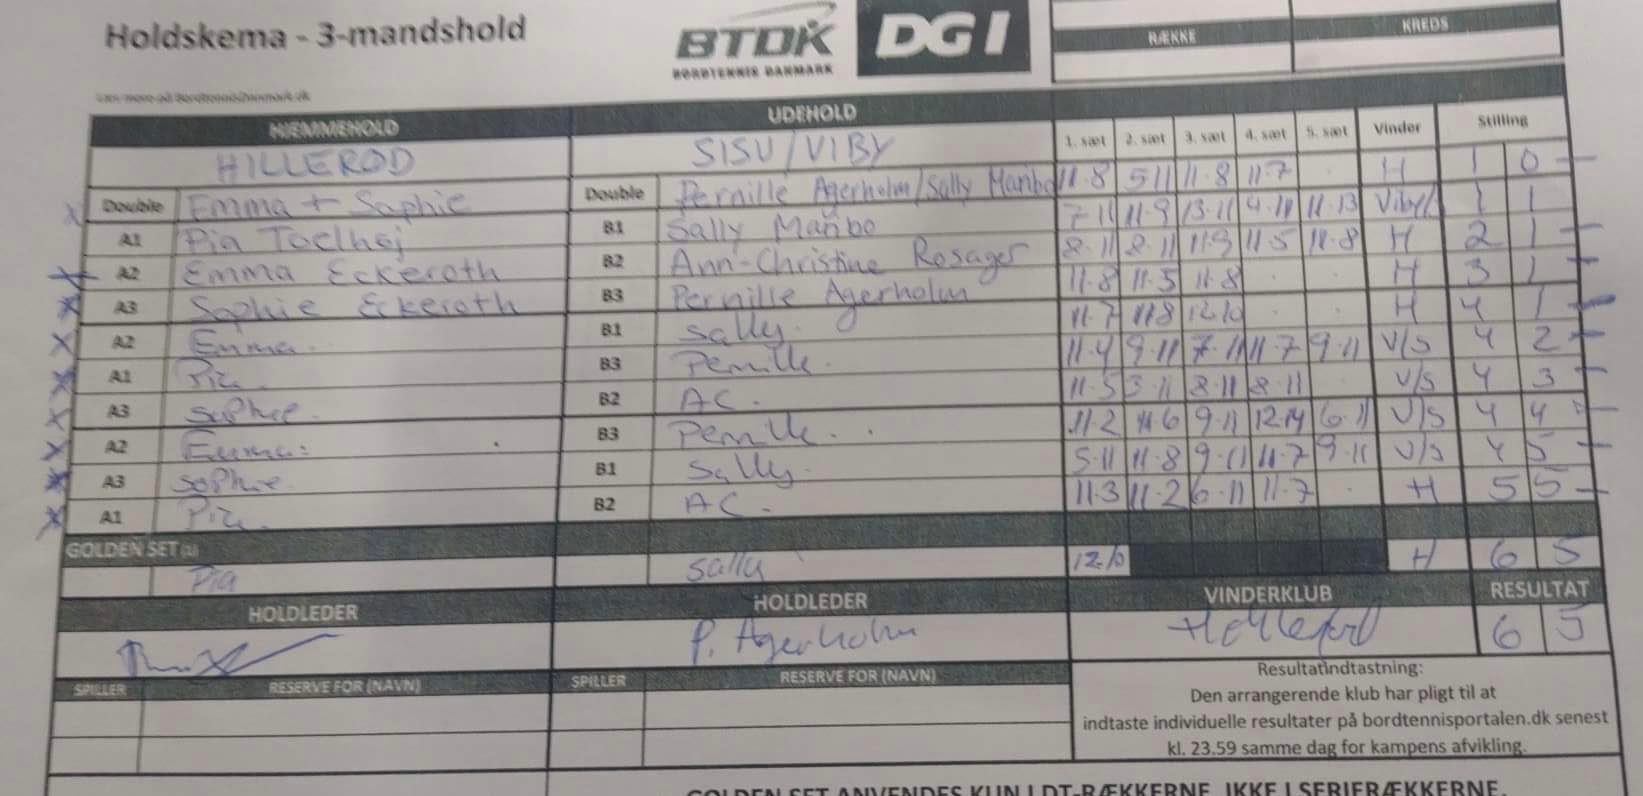 Holdskema - 3-mandshold
BTDK
BORDTENNIS DANMARK
DGI
RÆKKE
KREDS
HJEMMEHOLD UDEHOLD 1. sæt 2. sæt 3. sæt 4. sæt 5. sæt Vinder Stilling
HILLERØD SISU/VIBY
Double Emma + Sophie Double Pernille Agerholm/Sally Mañbo 11-8 5-11 11-8 11-7 H 1 0
A1 Pia Toelhøj B1 Sally Mañbo 7-11 11-9 13-11 4-11 11-13 Viby 1 1
A2 Emma Eckeroth B2 Ann-Christine Rosager 8-11 8-11 11-9 11-5 11-8 H 2 1
A3 Sophie Eckeroth B3 Pernille Agerholm 11-8 11-5 11-8 H 3 1
A2 Emma B1 Sally 11-7 11-8 12-10 H 4 1
A1 Pia B3 Pernille 11-4 9-11 7-11 11-7 9-11 V/S 4 2
A3 Sophie B2 AC. 11-5 3-11 8-11 8-11 V/S 4 3
A2 Emma B3 Pernille 11-2 11-6 9-11 12-14 6-11 V/S 4 4
A3 Sophie B1 Sally 5-11 11-8 9-11 11-7 9-11 V/S 4 5
A1 Pia B2 AC. 11-3 11-2 6-11 11-7 H 5 5
GOLDEN SET (1)
Pia Sally 12-10 H 6 5
HOLDLEDER HOLDLEDER VINDERKLUB RESULTAT
P. Agerholm Hillerød 6 5
SPILLER RESERVE FOR (NAVN) SPILLER RESERVE FOR (NAVN)
Resultatindtastning:
Den arrangerende klub har pligt til at
indtaste individuelle resultater på bordtennisportalen.dk senest
kl. 23.59 samme dag for kampens afvikling.
GOLDEN SET ANVENDES KUN I DT-RÆKKERNE, IKKE I SERIERÆKKERNE.